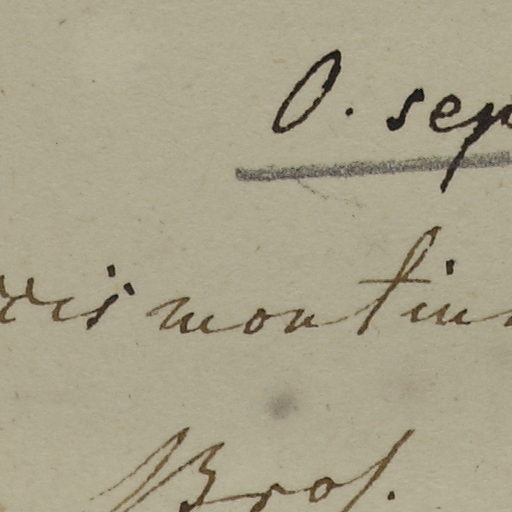 O. sep
cis montiu
Prof.